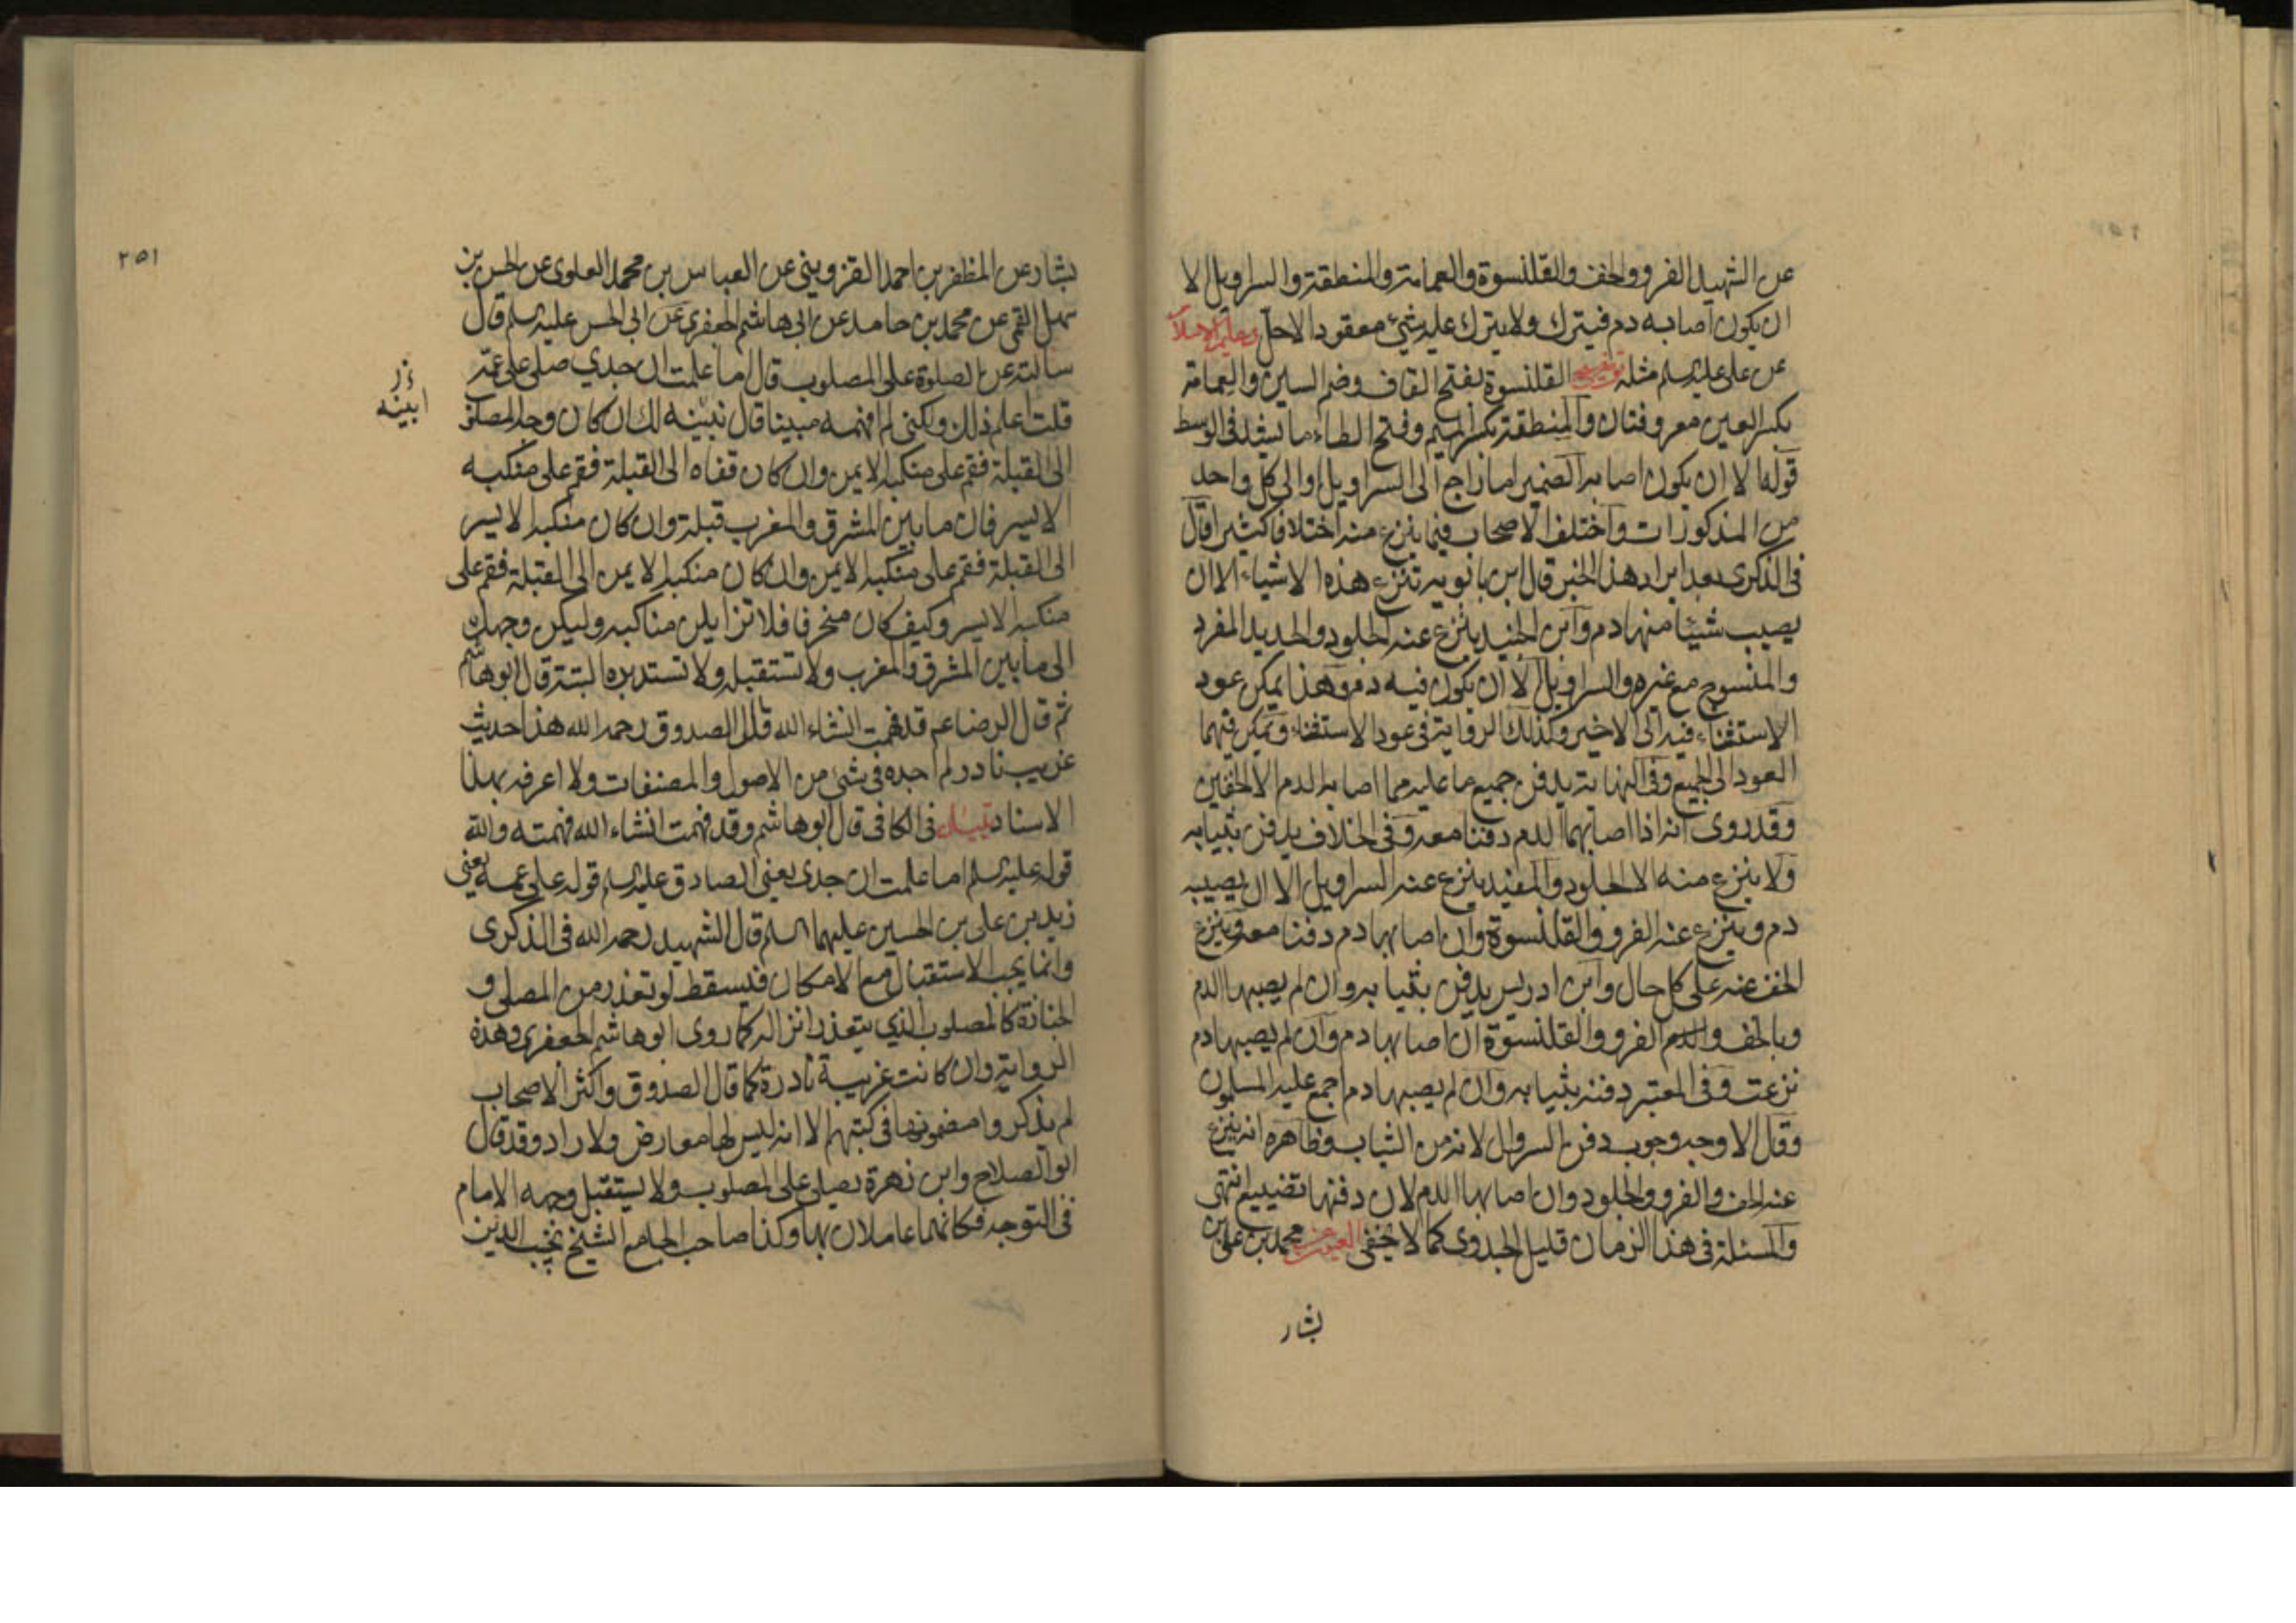 عن الشهيد الفرو والخف والقلنسوة والعمامة والمنطقة والسراويل الا
ان يكون اصابه دم فيترك ولا يترك عليه شيء معقود الا حل
عن علي عليه السلم مثله توضيح القلنسوة بفتح القاف وضم السين والعمامة
بكسر العين معروفتان والمنطقة بكسر الميم وفتح الطاء ما يشد في الوسط
قوله الا ان يكون اصابه الضمير اما راجع الى السراويل او الى كل واحد
من المذكورات واختلف الاصحاب فيما ينزع منه اختلافا كثيرا قال
في الذكرى بعد ايراد هذا الخبر قال ابن بابويه تنزع هذه الاشياء الا ان
يصيب شيئا منها دم وابن الجنيد ينزع عنه الجلود والحديد المفرد
والمنسوج مع غيره والسراويل الا ان يكون فيه دم وهذا يمكن عود
الاستثناء فيه الى الاخير وكذلك الرواية في عود الاستثناء ويمكن فيهما
العود الى الجميع وفي النهاية يدفن جميع ما عليه مما اصابه الدم الا الخفين
وقد روى انه اذا اصابهما الدم دفنا معه وفي الخلاف يدفن بثيابه
ولا ينزع منه الا الجلود والمفيد ينزع عنه السراويل الا ان يصيبه
دم وينزع عنه الفرو والقلنسوة وان اصابهما دم دفنا معه وينزع
الخف عنه على كل حال وابن ادريس يدفن بثيابه وان لم يصبها الدم
وبالخف والدم الفرو والقلنسوة ان اصابها دم وان لم يصبها دم
نزعت وفي المعتبر دفنه بثيابه وان لم يصبها دم اجمع عليه المسلمون
وقال الاوجه وجوب دفن السروال لانه من الثياب وظاهره انه ينزع
عنه الخف والفرو والجلود وان اصابها الدم لان دفنها تضييع انتهى
والمسئلة في هذا الزمان قليل الجدوى كما لا يخفى العيون عن محمد بن علي بن
بشار
٢٥١
بشار عن المظفر بن احمد القزويني عن العباس بن محمد العلوى عن الحسن بن
سهل القمي عن محمد بن حامد عن ابي هاشم الجعفرى عن ابي الحسن عليه السلم قال
سالته عن الصلوة على المصلوب قال اما علمت ان جدي صلى على عمه
قلت اعلم ذلك ولكني لم افهمه مبينا قال نبينه لك ان كان وجه المصلوب
ابينه
الى القبلة فقم على منكبه الايمن وان كان قفاه الى القبلة فقم على منكبه
الايسر فان ما بين المشرق والمغرب قبلة وان كان منكبه الايسر
الى القبلة فقم على منكبه الايمن وان كان منكبه الايمن الى القبلة فقم على
منكبه الايسر وكيف كان منحرفا فلا تزايلن مناكبه وليكن وجهك
الى ما بين المشرق والمغرب ولا تستقبله ولا تستدبره البتة قال ابو هاشم
ثم قال الرضا ع قد فهمت انشاء الله قال الصدوق رحمه الله هذا حديث
غريب نادر لم اجده في شيء من الاصول والمصنفات ولا اعرفه بهذا
الاسناد تبيان في الكافي قال ابو هاشم وقد فهمت انشاء الله فهمته والله
قوله عليه السلم اما علمت ان جدى يعني الصادق عليه السلم قوله على عمه يعني
زيد بن علي بن الحسين عليهما السلم قال الشهيد رحمه الله في الذكرى
وانما يجب الاستقبال مع الامكان فيسقط لو تعذر من المصلي و
الجنازة كالمصلوب الذي يتعذر انزاله كما روى ابو هاشم الجعفرى وهذه
الرواية وان كانت غريبة نادرة كما قال الصدوق واكثر الاصحاب
لم يذكروا مضمونها في كتبهم الا انه ليس لها معارض ولا راد وقد قال
ابو الصلاح وابن زهرة يصلي على المصلوب ولا يستقبل وجهه الامام
في التوجه فكانهما عاملان بها وكذا صاحب الجامع الشيخ نجيب الدين